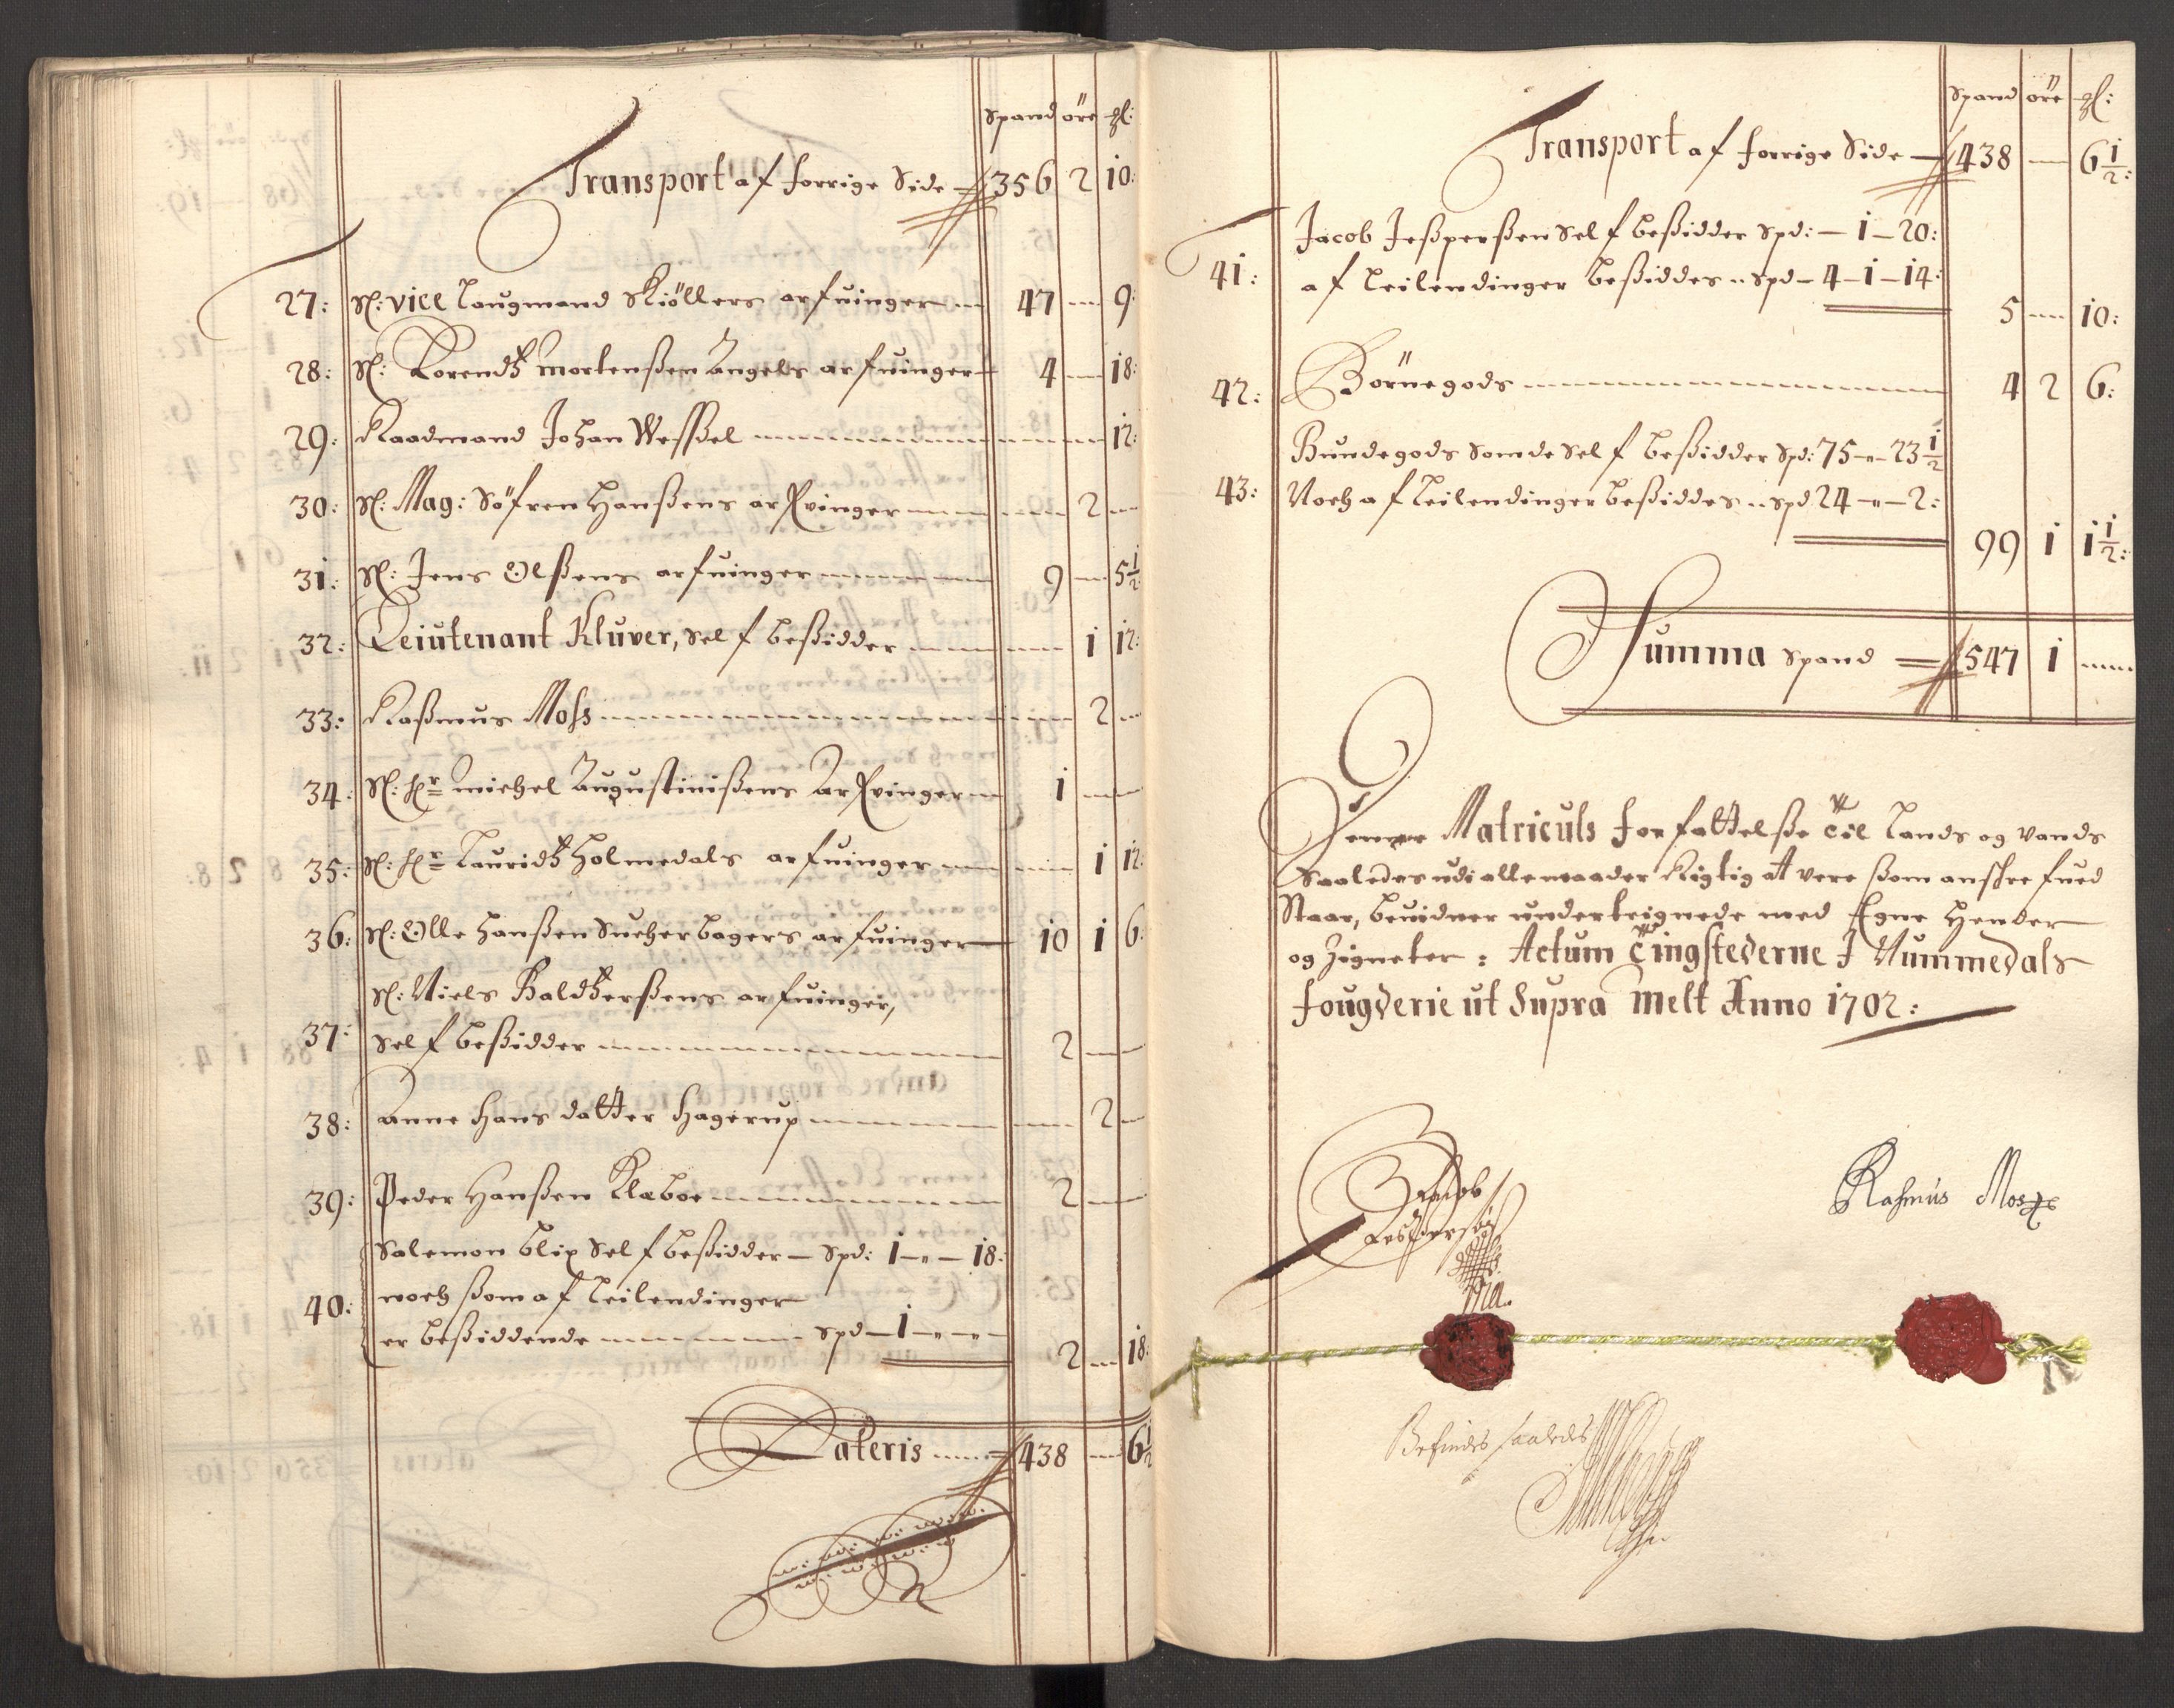 Spand öre gl:
Transport af forrige Side — 356 2 10:
27: Sl: vice Laugmand Kiöllers arfuinger 47 — 9:
28: Sl: Lorendtz Mortenßen Angels arfuinger 4 — 18:
29: Raadmand Johan Wessel — — 12:
30: Sl: Mag: Söfren Hanßens arfvinger — 2 —
31: Sl: Jens Olßens arfuinger 9 — 5 1/2
32: Leiutenant Kluver, self beßidder — 1 12:
33: Raßmus Moss — 2 —
34: Sl: Hr Michel Augustinißens Arfvinger 1 — —
35: Sl: Hr Lauridtz Holmedals arfuinger — 1 12:
36: Sl: Olle Hanßen Sucherbagers arfuinger 10 1 6:
Sl: Niels Baldtzerßens arfuinger,
37: self beßidder 2 — —
38: Anne Hans datter Hagerup — 2 —
39: Peder Hanßen Klæboe 2 — —
Salemon Blix self beßidder — Spd: 1 — „ — 18:
40: noch ßom af Leilendinger
er beßiddende — spd — 1 — „ — „ —
2 — 18:
Lateris — 438 — 6 1/2
Spand öre gl:
Transport af forrige Side — 438 — 6 1/2:
Jacob Jeßperßen self beßidder Spd: — 1 — 20:
41: af Leilendinger beßiddes „ spd — 4 — 1 — 14:
5 — 10:
42: Börnegods 4 2 6:
Bundegods som de self beßidder Spd: 75 — „ — 23 1/2
43: Noch af Leilendinger beßiddes „ spd 24 — „ — 2:
99 1 1 1/2:
Summa Spand — 547 1 —
Denne Matriculs forfattelße til Lands og Vands
Saaledes udi alle maader Rigtig at vere ßom anskrefued
Staar, bevidner underteignede med Egne Hender
og Zigneter: Actum Tingstederne I Nummedals
fougderie ut Supra Melt Anno 1702:
Jacob
Jesperßøn
Rasmus Moss
Befindes saaledes